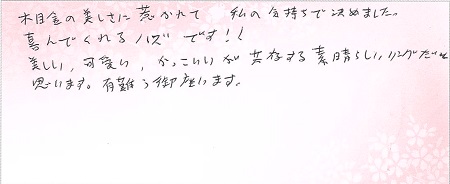 木目金の美しさに惹かれて 私の気持ちで決めました。
喜んでくれるハズです！！
美しい、可愛い、かっこいいが共存する素晴らしいリングだと
思います。有難う御座います。